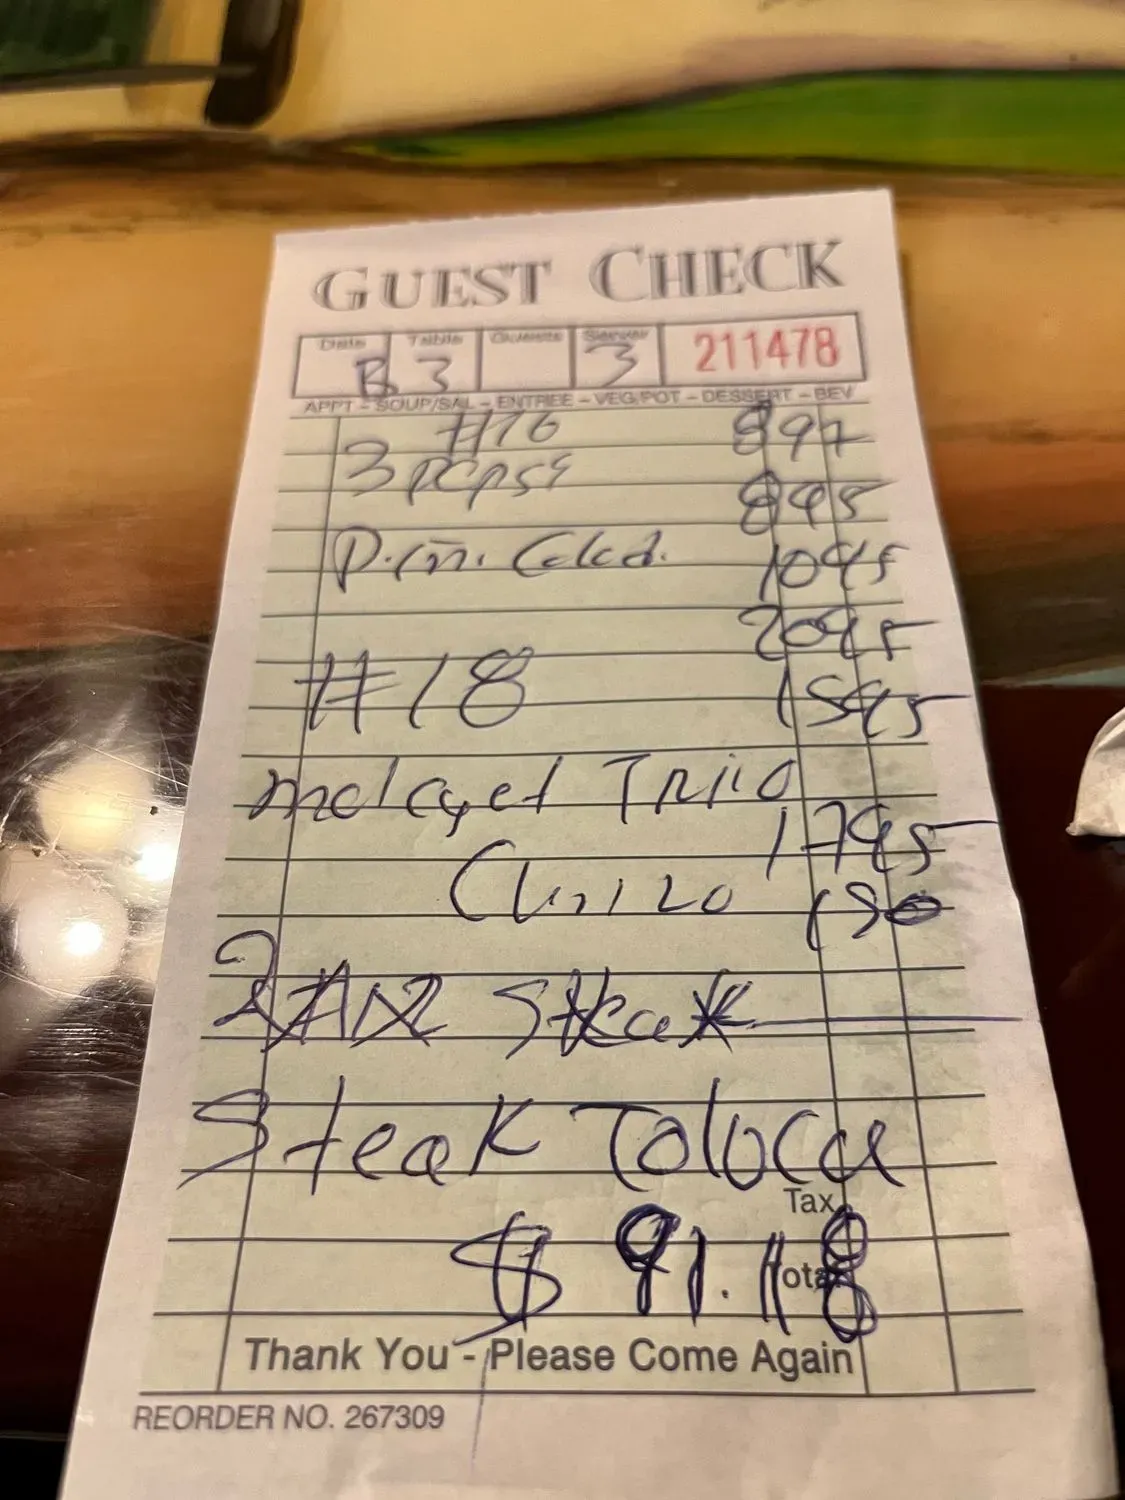 GUEST CHECK
Date Table Guests Server
B 3 3 211478
APPT - SOUP/SAL - ENTREE - VEG/POT - DESSERT - BEV
#16 897
3 pcpss 895
P.in. Colad. 1095
2095
#18 1595
molcajet Triio
1795
Chrizo 150
Steak
Steak Toluca
Tax
$ 91.18
Total
Thank You - Please Come Again
REORDER NO. 267309